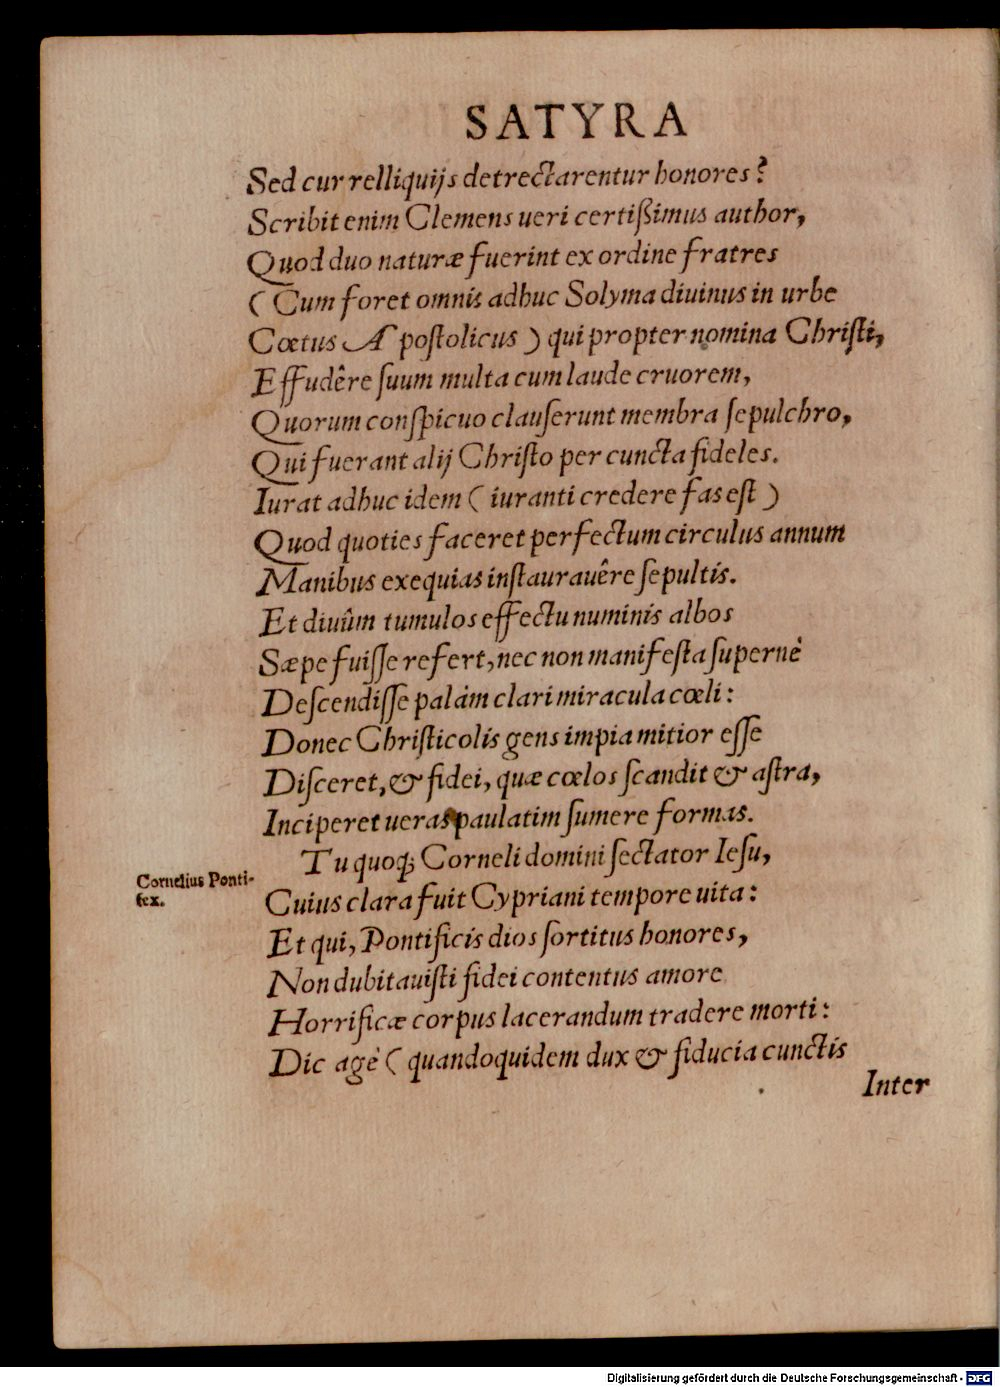 SATYRA
Sed cur relliquijs detrectarentur honores?
Scribit enim Clemens ueri certißimus author,
Quod duo naturæ fuerint ex ordine fratres
(Cum foret omnis adhuc Solyma diuinus in urbe
Cœtus Apostolicus) qui propter nomina Christi,
Effudêre suum multa cum laude cruorem,
Quorum conspicuo clauserunt membra sepulchro,
Qui fuerant alij Christo per cuncta fideles.
Iurat adhuc idem (iuranti credere fas est)
Quod quoties faceret perfectum circulus annum
Manibus exequias instaurauêre sepultis.
Et diuûm tumulos effectu numinis albos
Sæpe fuisse refert, nec non manifesta supernè
Descendisse palàm clari miracula cœli:
Donec Christicolis gens impia mitior esse
Disceret, & fidei, quæ cœlos scandit & astra,
Inciperet ueras paulatim sumere formas.
Tu quoq; Corneli domini sectator Iesu,
Cornelius Ponti-
fex.
Cuius clara fuit Cypriani tempore uita:
Et qui, Pontificis dios sortitus honores,
Non dubitauisti fidei contentus amore
Horrificæ corpus lacerandum tradere morti:
Dic agè (quandoquidem dux & fiducia cunctis
Inter
Digitalisierung gefördert durch die Deutsche Forschungsgemeinschaft - DFG